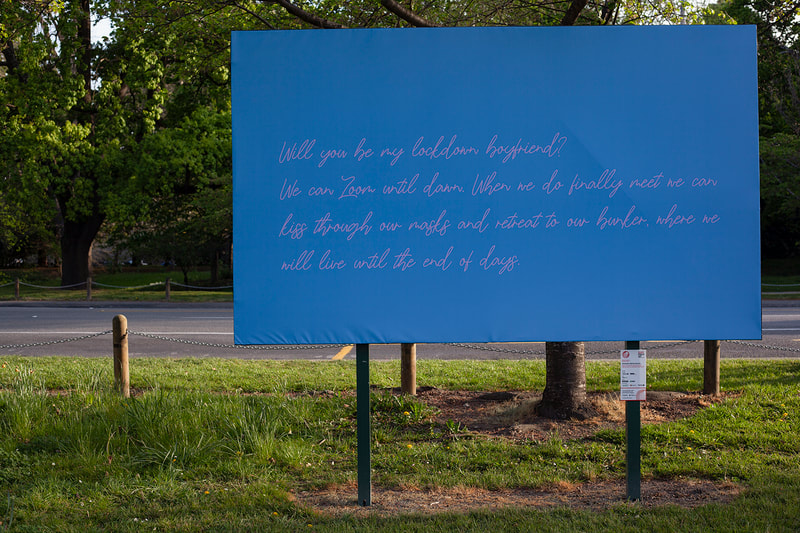 Will you be my lockdown boyfriend?
We can Zoom until dawn. When we do finally meet we can
kiss through our masks and retreat to our bunker, where we
will live until the end of days.